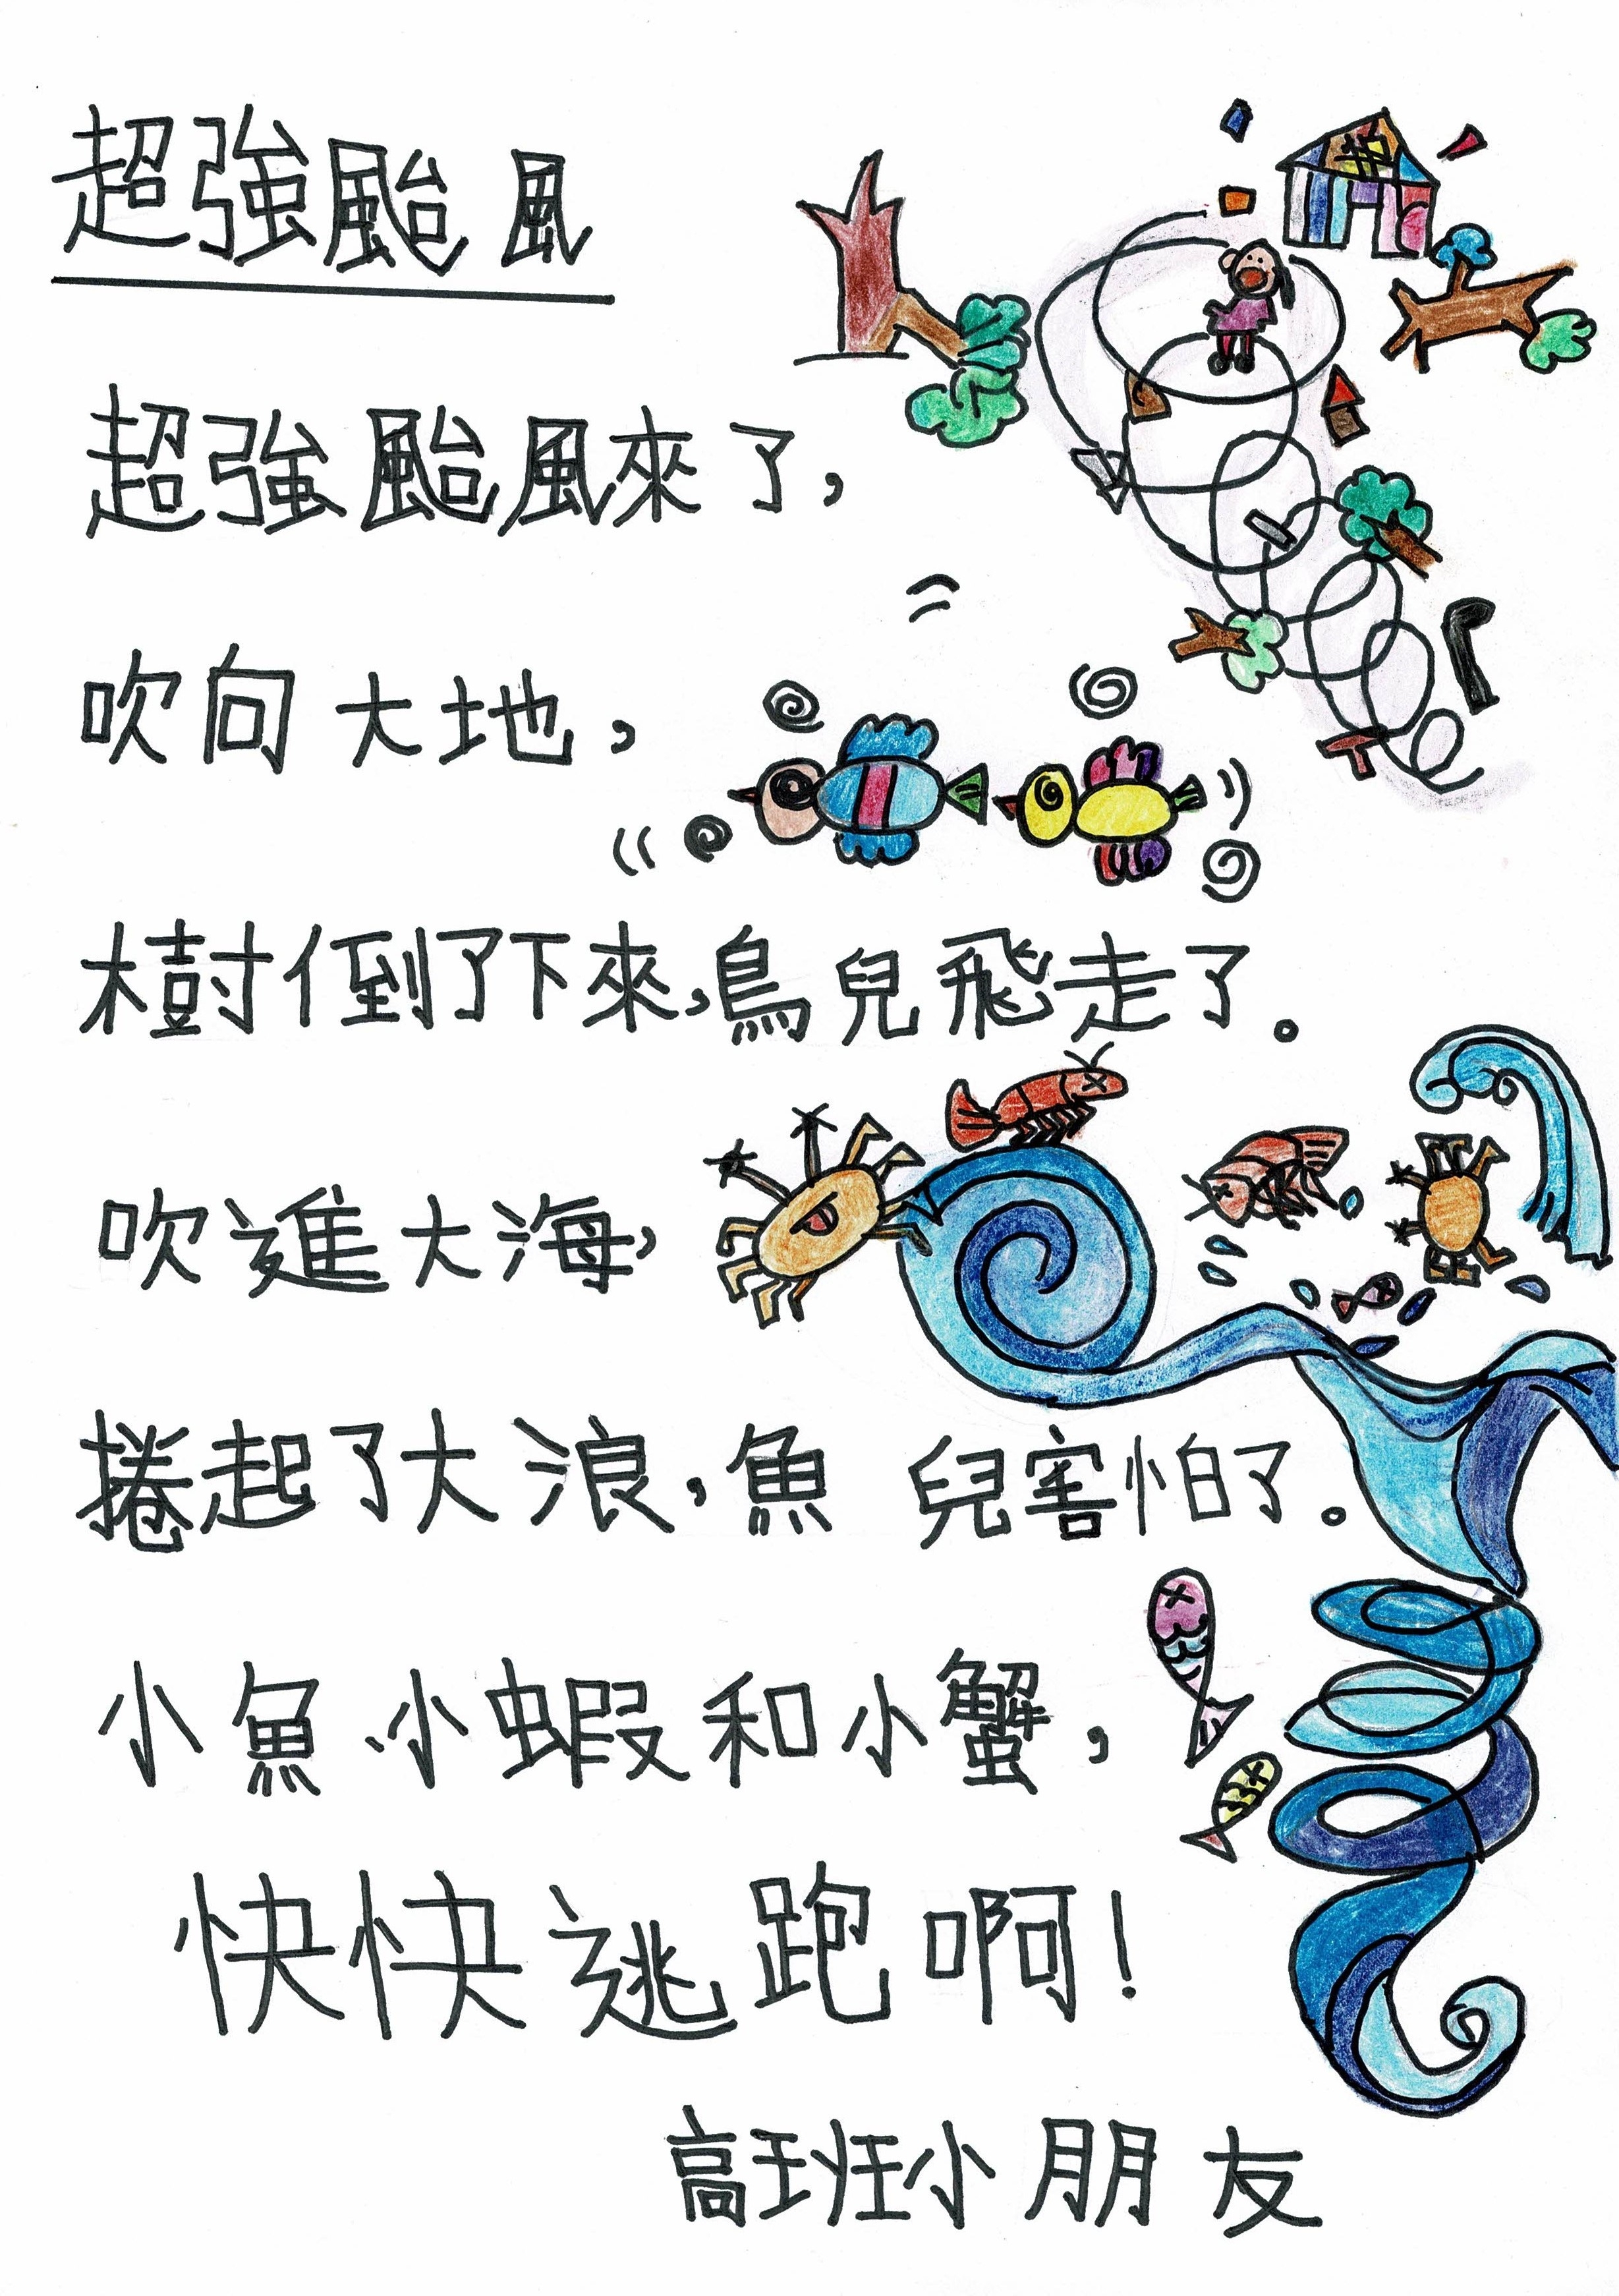 超強颱風
超強颱風來了，
吹向大地，
樹倒了下來，鳥兒飛走了。
吹進大海，
捲起了大浪，魚兒害怕了。
小魚、小蝦和小蟹，
快快逃跑啊！
高班小朋友